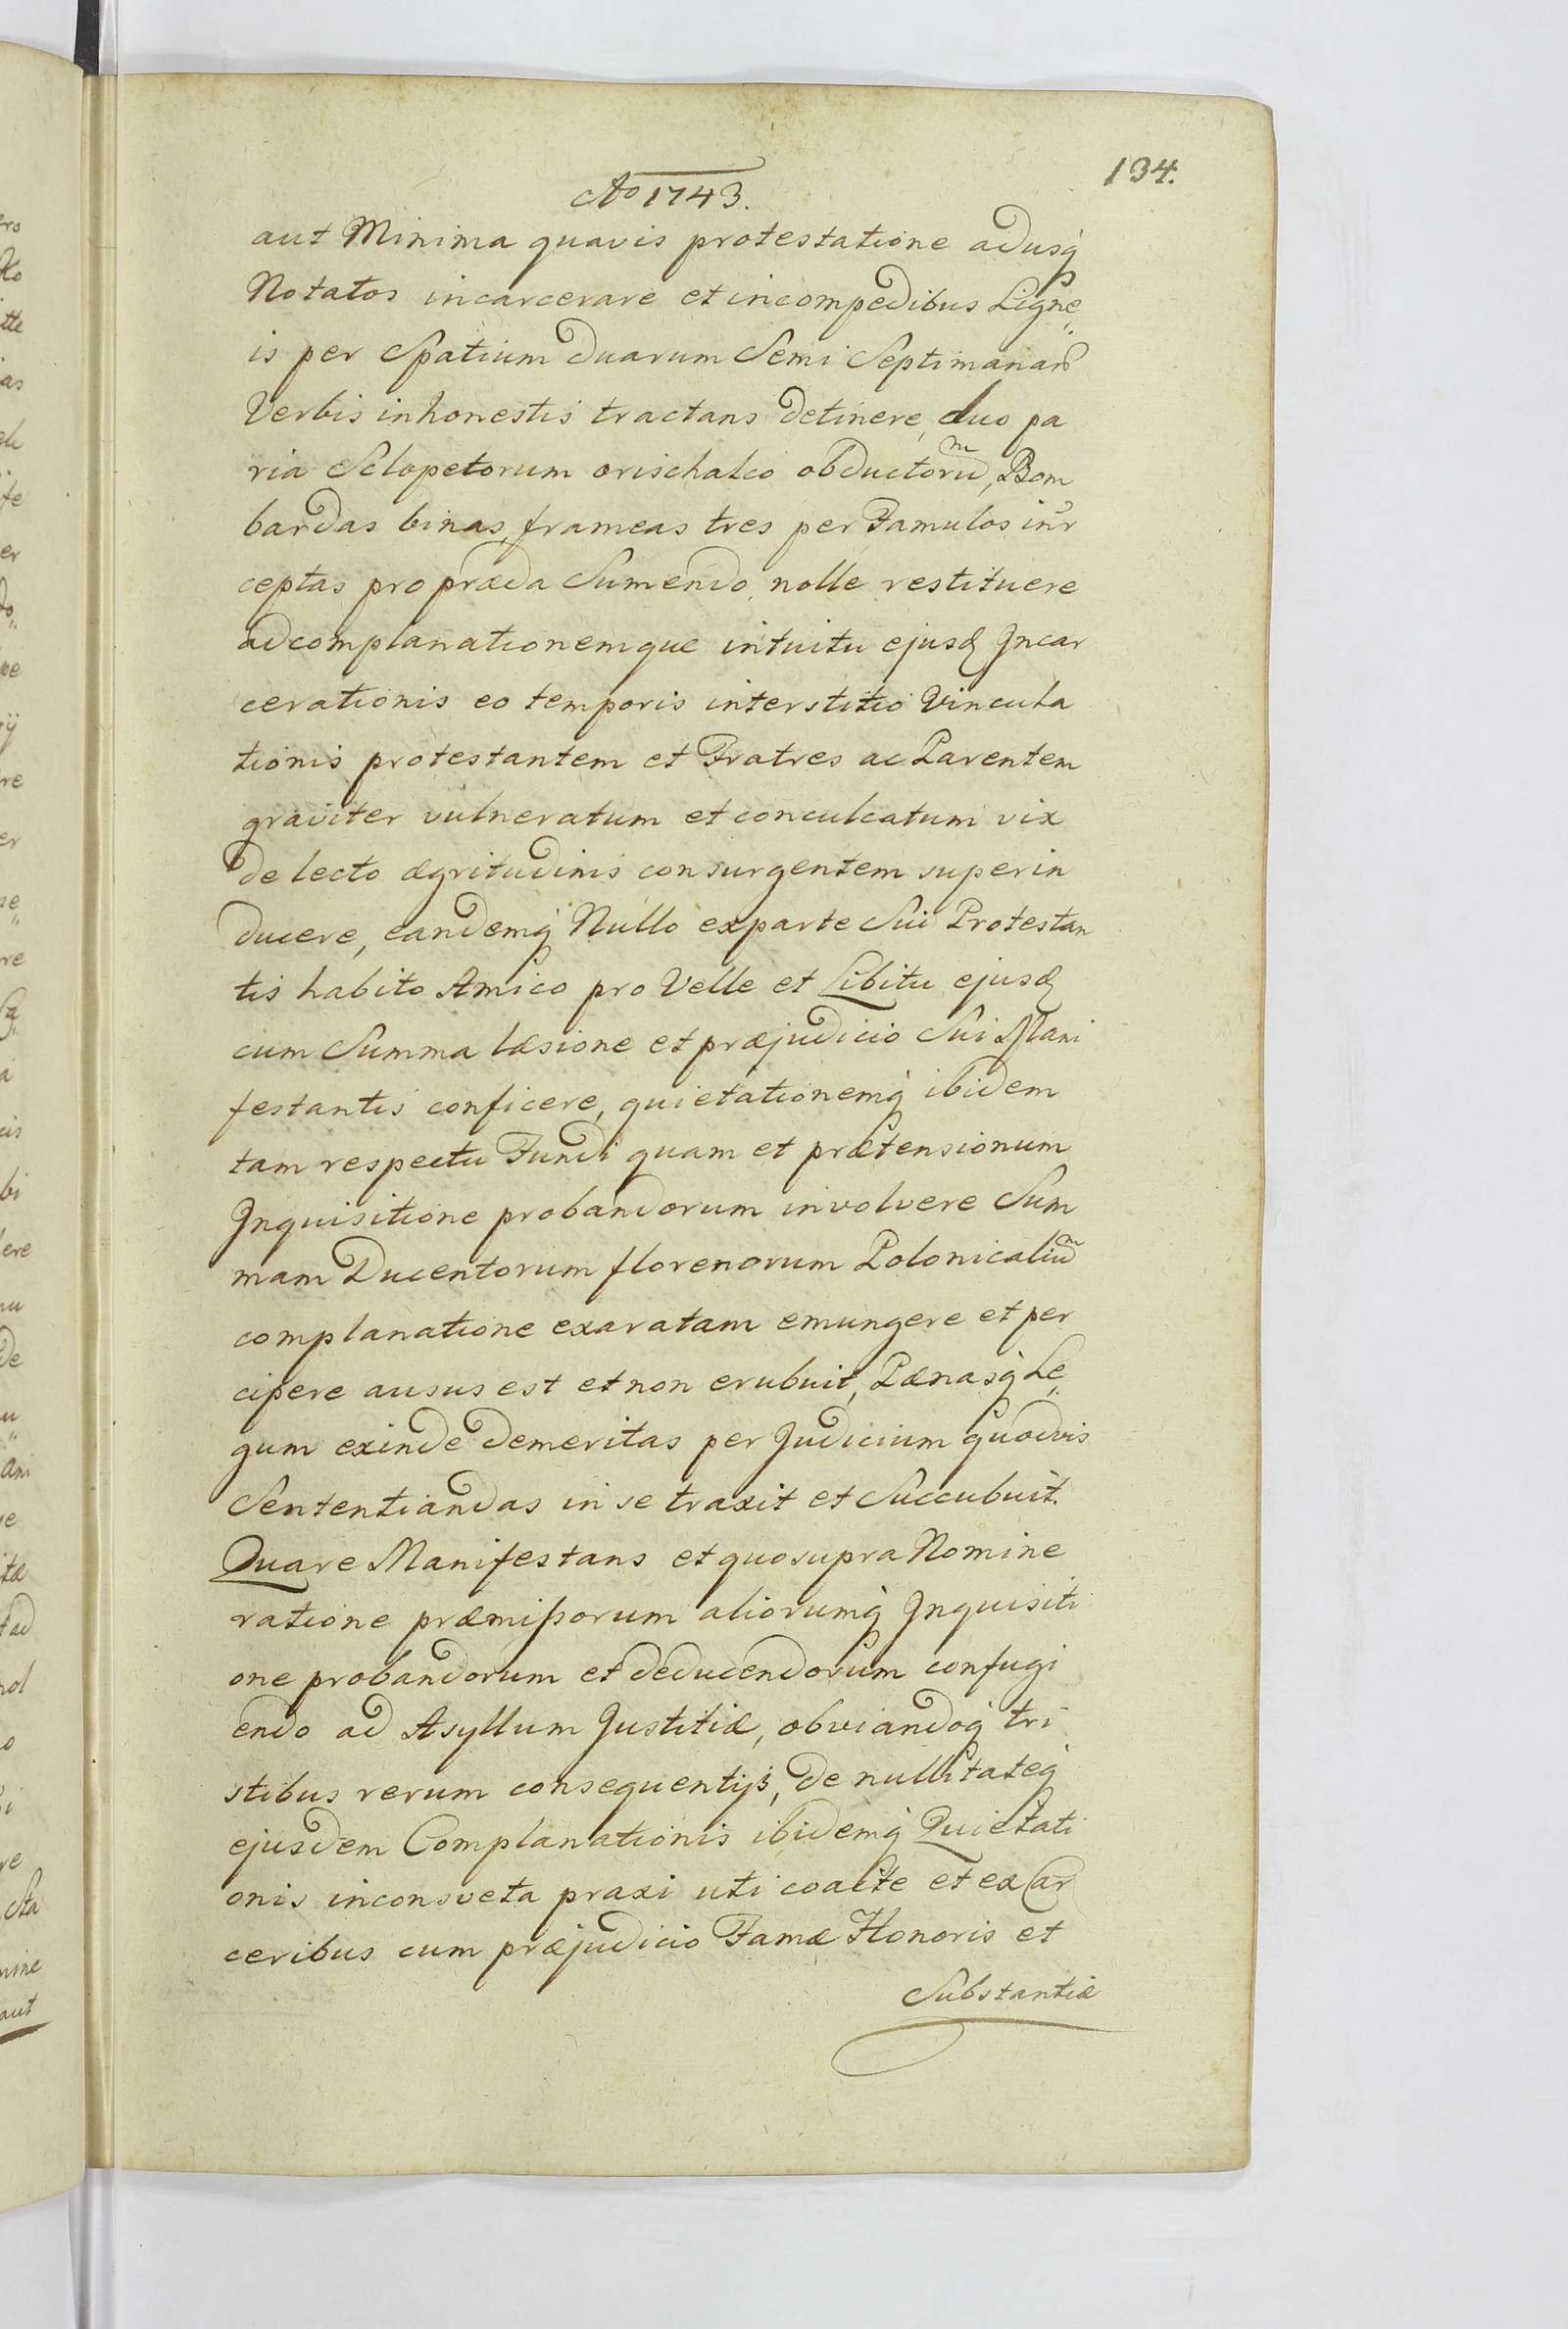 134.
Ao 1743.
aut Minima quavis protestatione adusq̀
Notatos incarcerare et incompedibus Ligne„
is per Spatium duarum Semi Septimanarũ
Verbis inhonestis tractans detinere, duo pa
ria Sclopetorum orischalco obductorũ, Bom
bardas binas, frameas tres per Famulos
ceptas pro præda Sumendo, nolle restituere
adcomplanationemque intuitu ejusd Incar
cerationis eo temporis interstitio Vincula
tionis protestantem et Fratres ac Parentem
graviter vulneratum et conculcatum vix
de lecto ægritudinis consurgentem superin
ducere, eandemq̀ Nullo exparte Sui Protestan
tis habito Amico pro Velle et Libitu ejusd
cum Summa læsione et præjudicio Sui Mani
festantis conficere, quietationemq̀ ibidem
tam respectu Fundi quam et prætensionum
Inquisitione probandorum involvere Sum
mam Ducentorum florenorum Polonicaliũ
complanatione exaratam emungere et per
cipere ausus est et non erubuit, Pænasq̀ Le„
gum exinde demeritas per Judicium quodvis
Sententiandas in se traxit et Succubuit.
Quare Manifestans et quosupra Nomine
ratione præmissorum aliorumq̀ Inquisiti
one probandorum et deducendorum confugi
endo ad Asyllum Justitiæ, obviandoq̀ tri
stibus rerum consequentijs, de nullitateq̀
ejusdem Complanationis ibidemq̀ Quietati
onis inconsveta praxi uti coacte et ex Car
ceribus cum præjudicio Famæ Honoris et
Substantiæ